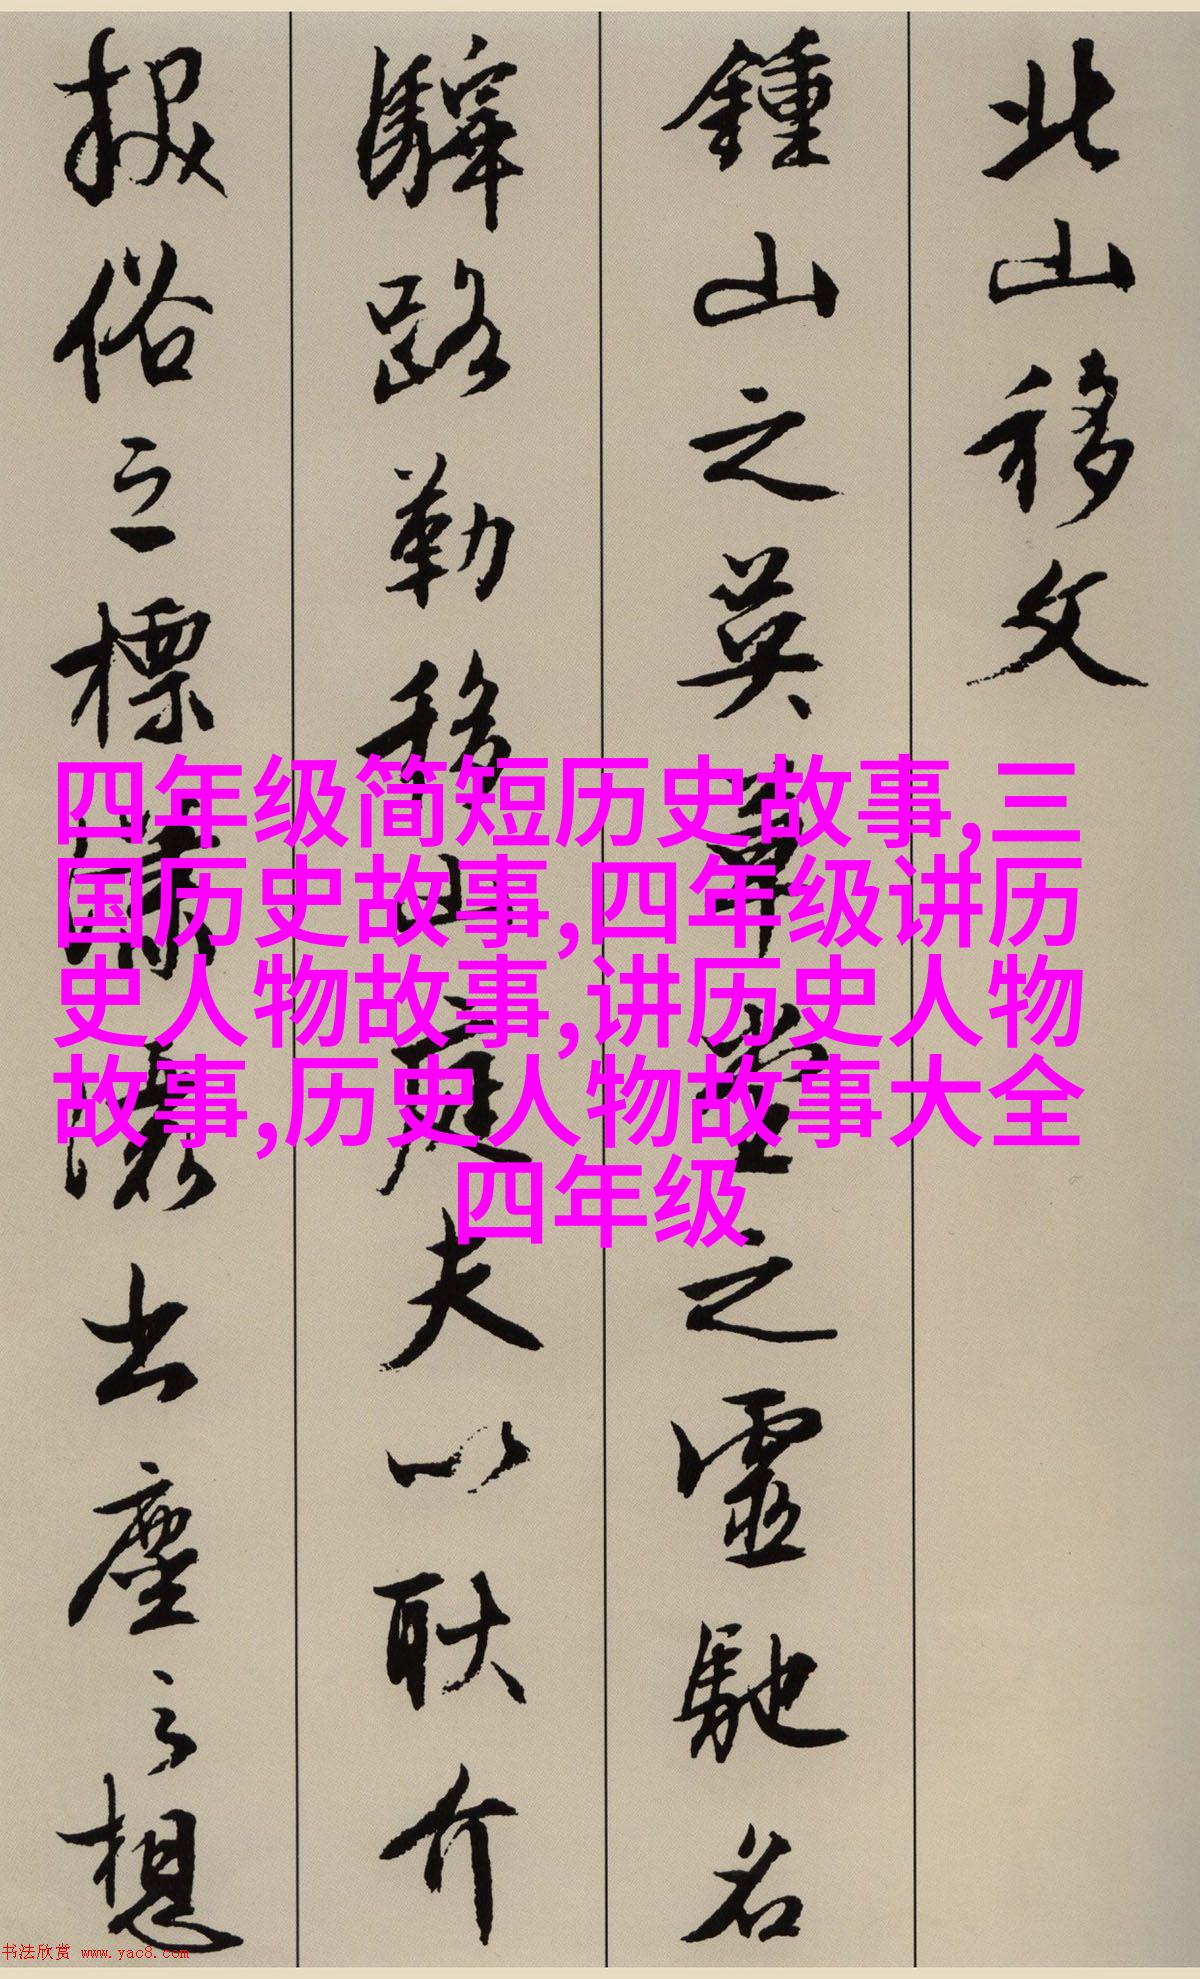 北山移文
鍾山之英草堂之靈馳名
驛路勒移山庭夫以耿介
拔俗之標瀟灑出塵之想
四年级简短历史故事,三
国历史故事,四年级讲历
史人物故事,讲历史人物
故事,历史人物故事大全
四年级
书法欣赏 www.yac8.com